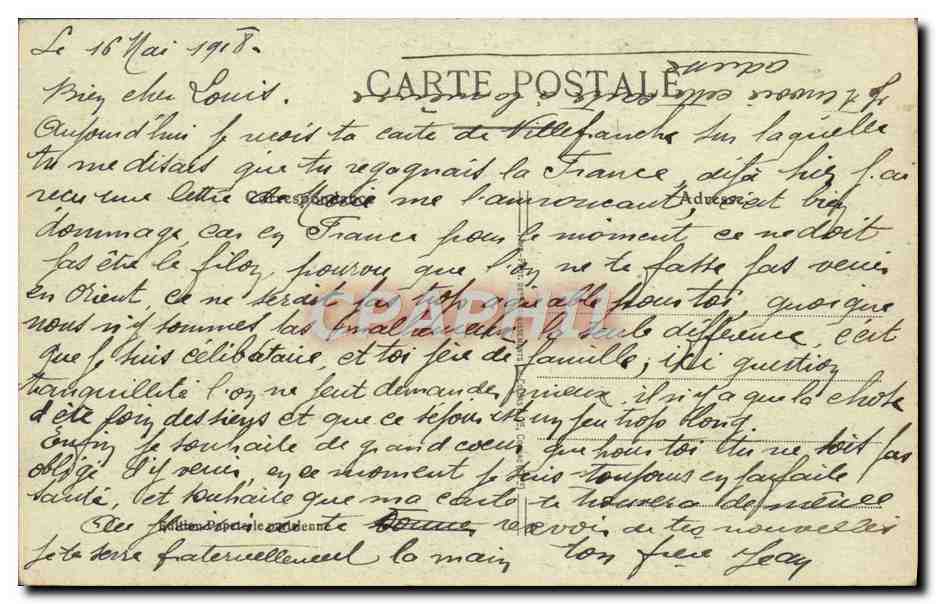 Le 16 Mai 1918.
CARTE POSTALE
Je t'envoie cette carte à la même
adresse
Bien cher Louis.
Aujourd'hui je reçois ta carte de Villefranche sur laquelle
tu me disais que tu regagnais la France, déjà hier j'ai
reçu une lettre de me l'annoncant, c'est bien
Correspondance
Adresse
dommage, car en France pour le moment ce ne doit
pas être le filon, pourvu que l'on ne te fasse pas venir
en Orient, ce ne serait pas trop agréable pour toi, quoique
CPAPHIL
nous n'y sommes pas malheureux, la seule différence, c'est
que je suis célibataire, et toi père de famille, ici question
tranquillité l'on ne peut demander mieux, il n'y a que la chose
d'être loin des siens et que ce séjour est un peu trop long.
Enfin je souhaite de grand coeur que pour toi tu ne sois pas
obligé d'y venir, en ce moment je suis toujours en parfaite
santé, et souhaite que ma carte te trouvera de même
Edition Papeterie parisienne
recevoir de tes nouvelles
Je te serre fraternellement la main ton frère Jean